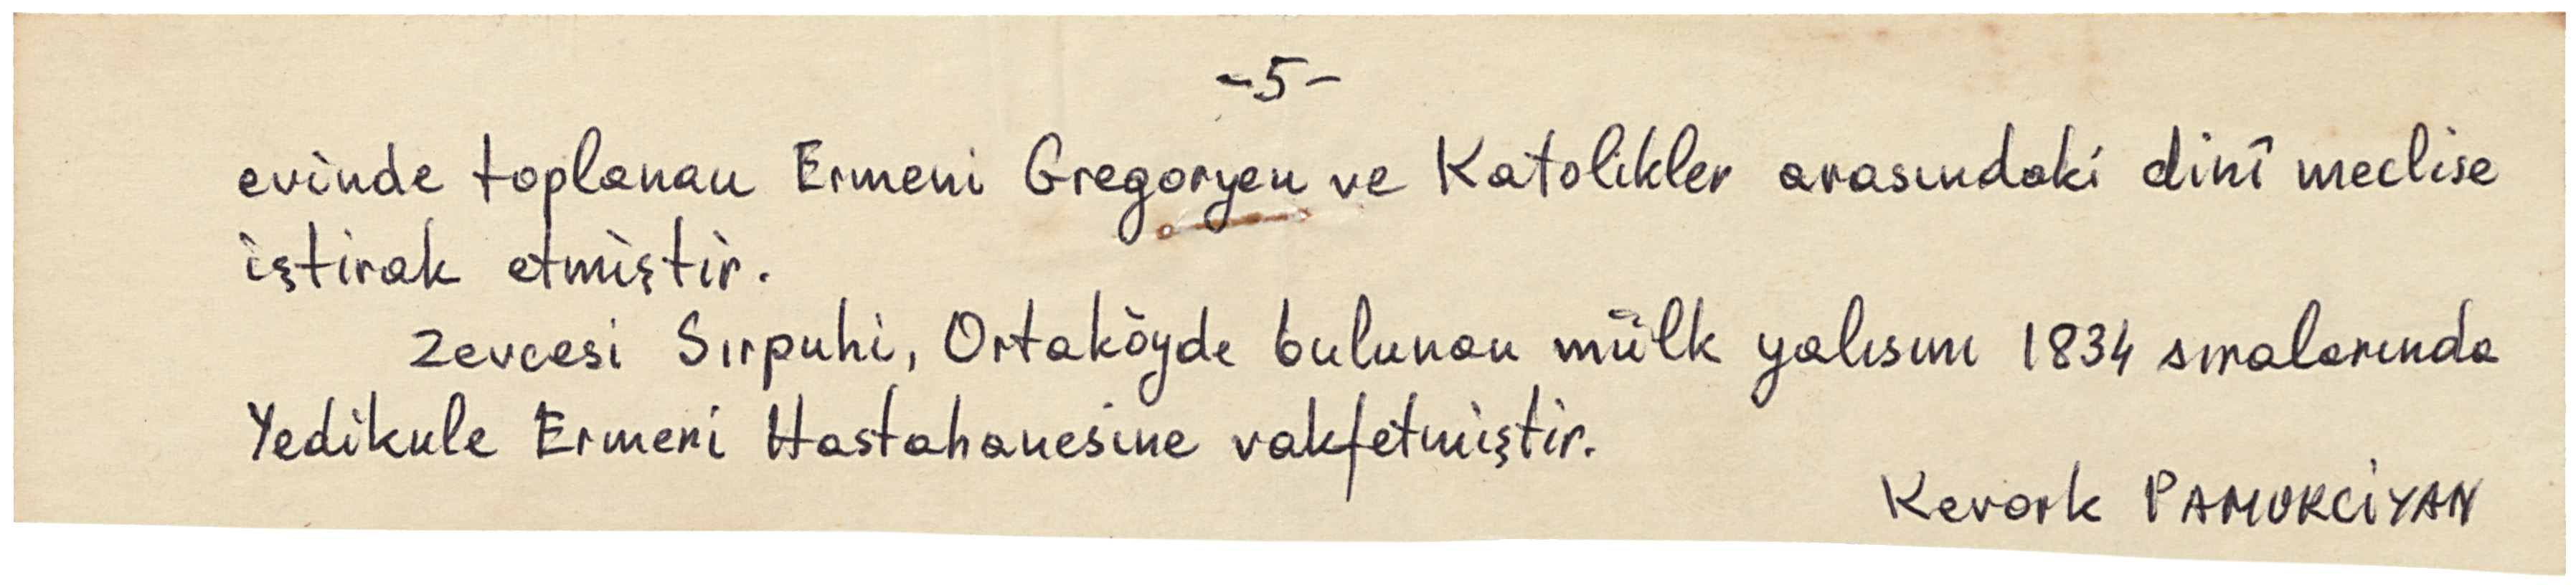 -5-
evinde toplanan Ermeni Gregoryen ve Katolikler arasındaki dinî meclise
iştirak etmiştir.
Zevcesi Sırpuhi, Ortaköyde bulunan mülk yalısını 1834 sıralarında
Yedikule Ermeni Hastahanesine vakfetmiştir.
Kevork PAMUKCİYAN